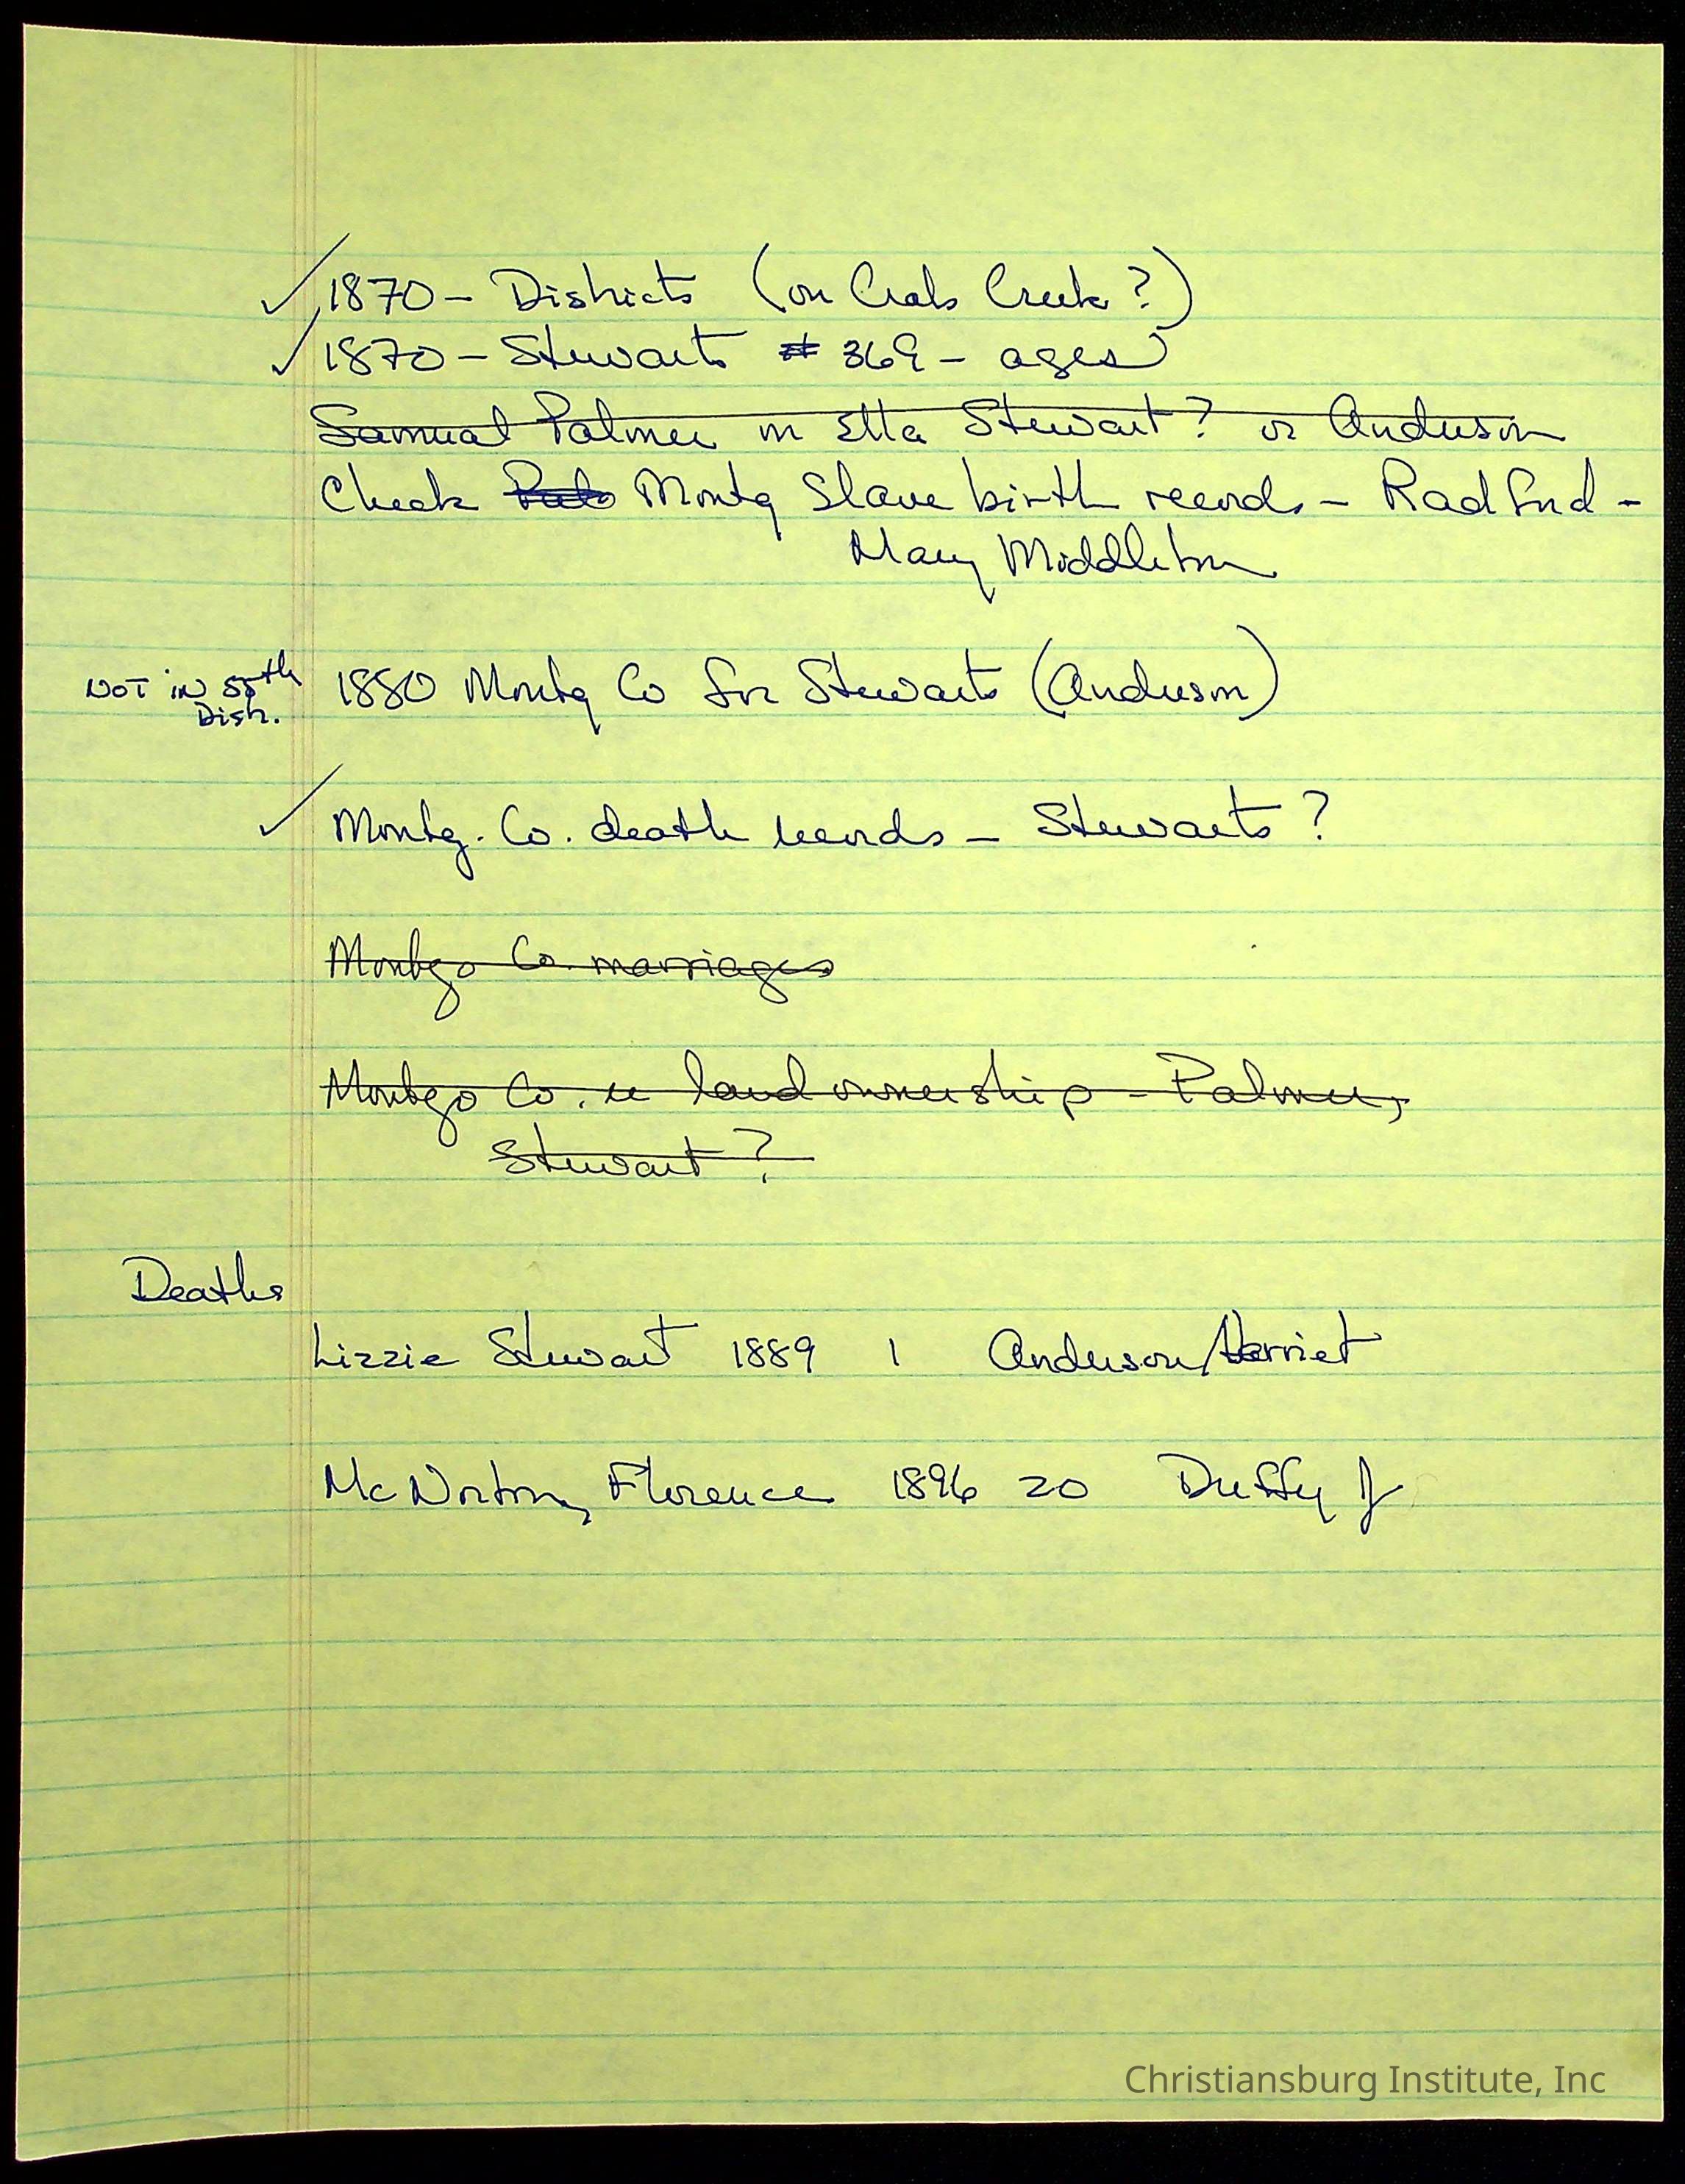 ✓ 1870 – Districts (on Crab Creek?)
✓ 1870 – Stewarts # 369 – ages
Samual Palmer m Etta Stewart? or Anderson
Check Montg Slave birth records – Radford –
Mary Middleton
NOT IN 5th 1880 Montg Co for Stewarts (Anderson)
Distr.
✓ Montg. Co. death records – Stewarts?
Montgo Co. marriages
Montgo Co. re land ownership – Palmer,
Stewart?
Deaths
Lizzie Stewart 1889 1 Anderson/Harriet
McNorton, Florence 1896 20 Duffy J
Christiansburg Institute, Inc